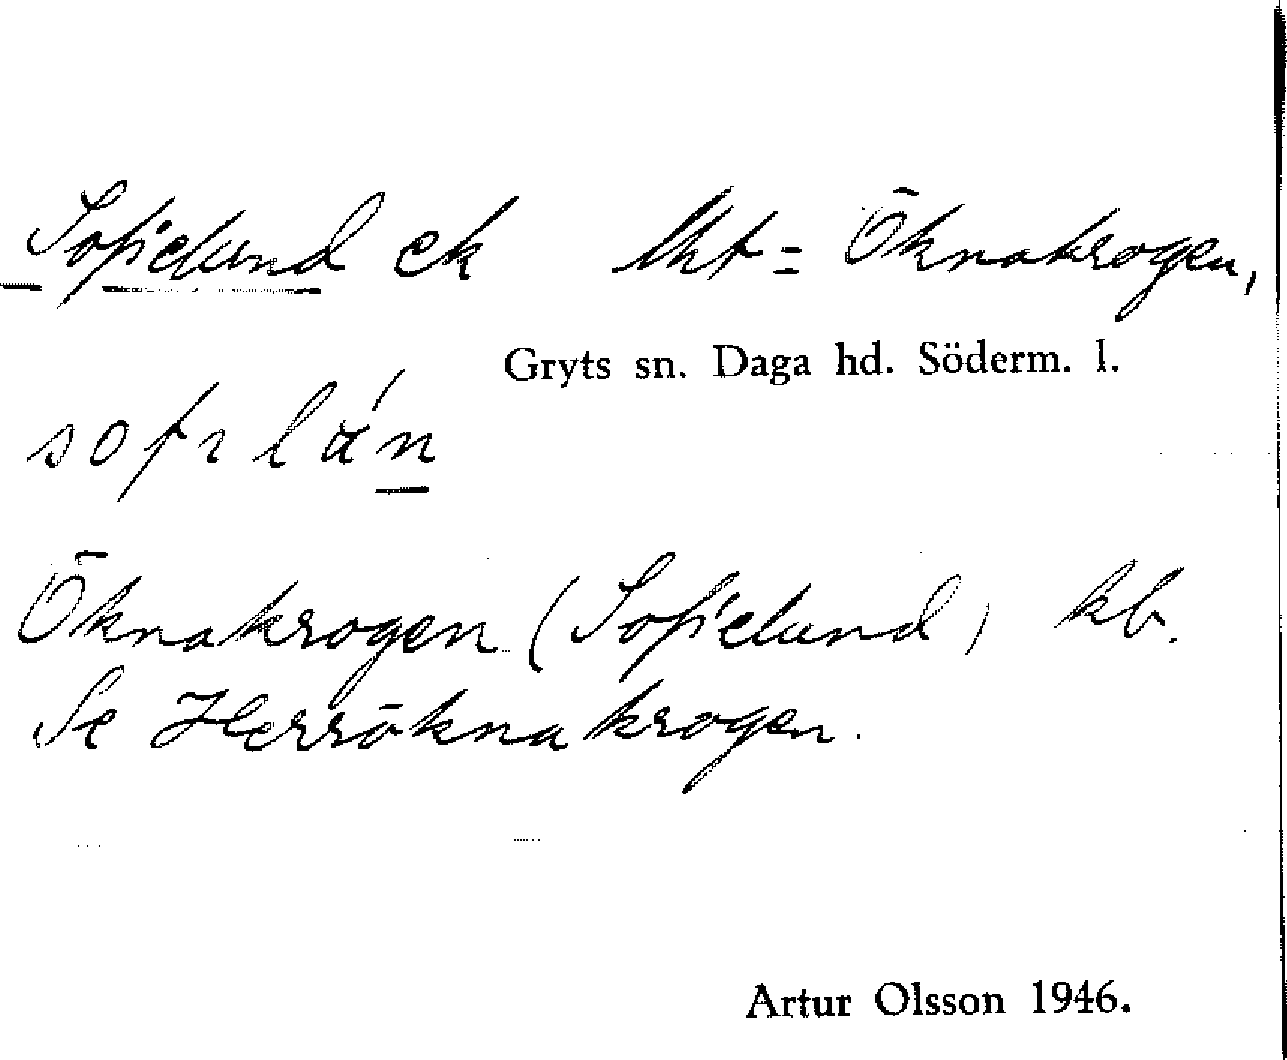 Sofielund ek lht = Öknakrogen,
Gryts sn. Daga hd. Söderm. l.
Öknakrogen (Sofielund) kb.
Se Herröknakrogen.
Artur Olsson 1946.